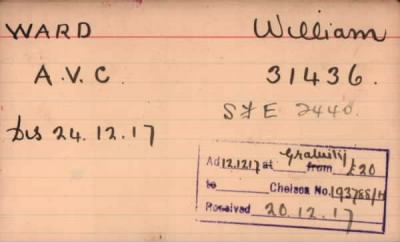 WARD William
A.V.C. 31436.
S/E 2440.
Dis 24.12.17
Gratuity
Ad 12.12.17 at from £20
to Chelsea No. 193788/H
Received 20.12.17